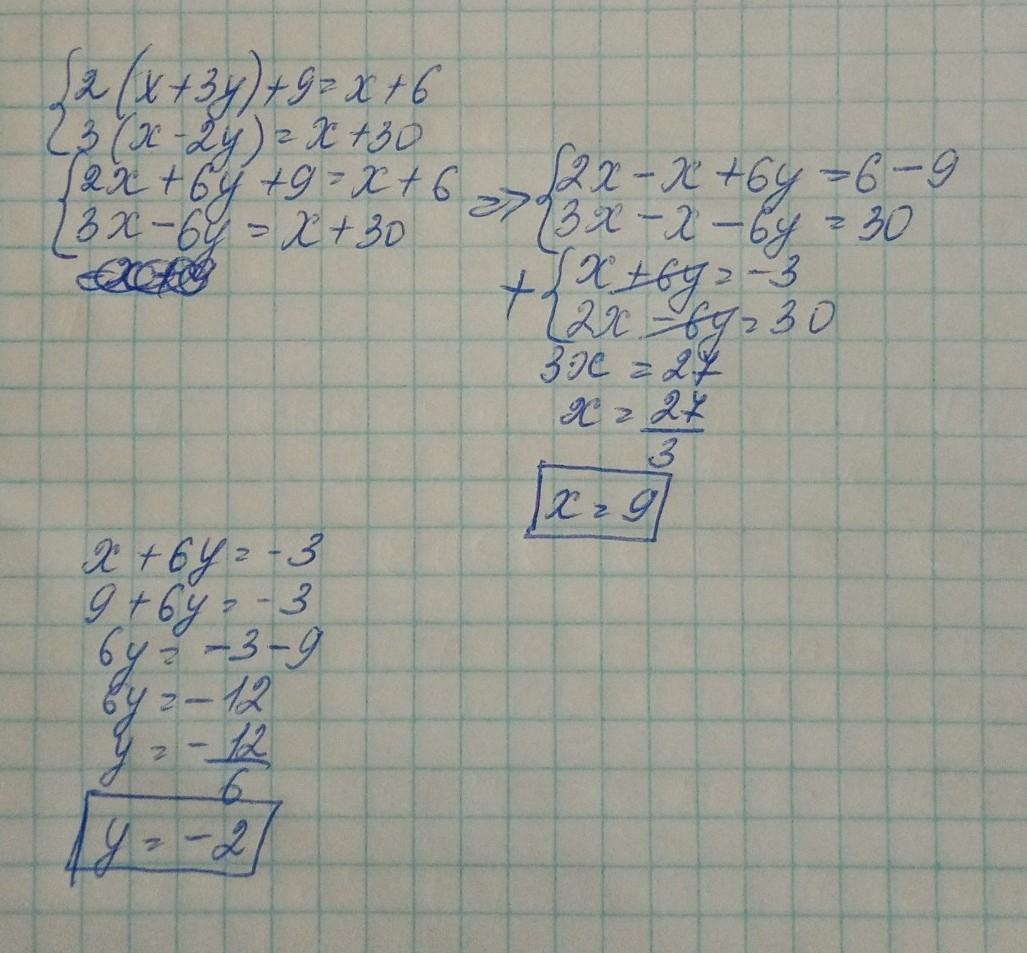 {2(x+3y)+9=x+6
{3(x-2y)=x+30
{2x+6y+9=x+6
{3x-6y=x+30
=> {2x-x+6y=6-9
{3x-x-6y=30
+ {x+6y=-3
{2x-6y=30
3x=27
x=27/3
x=9
x+6y=-3
9+6y=-3
6y=-3-9
6y=-12
y=-12/6
y=-2